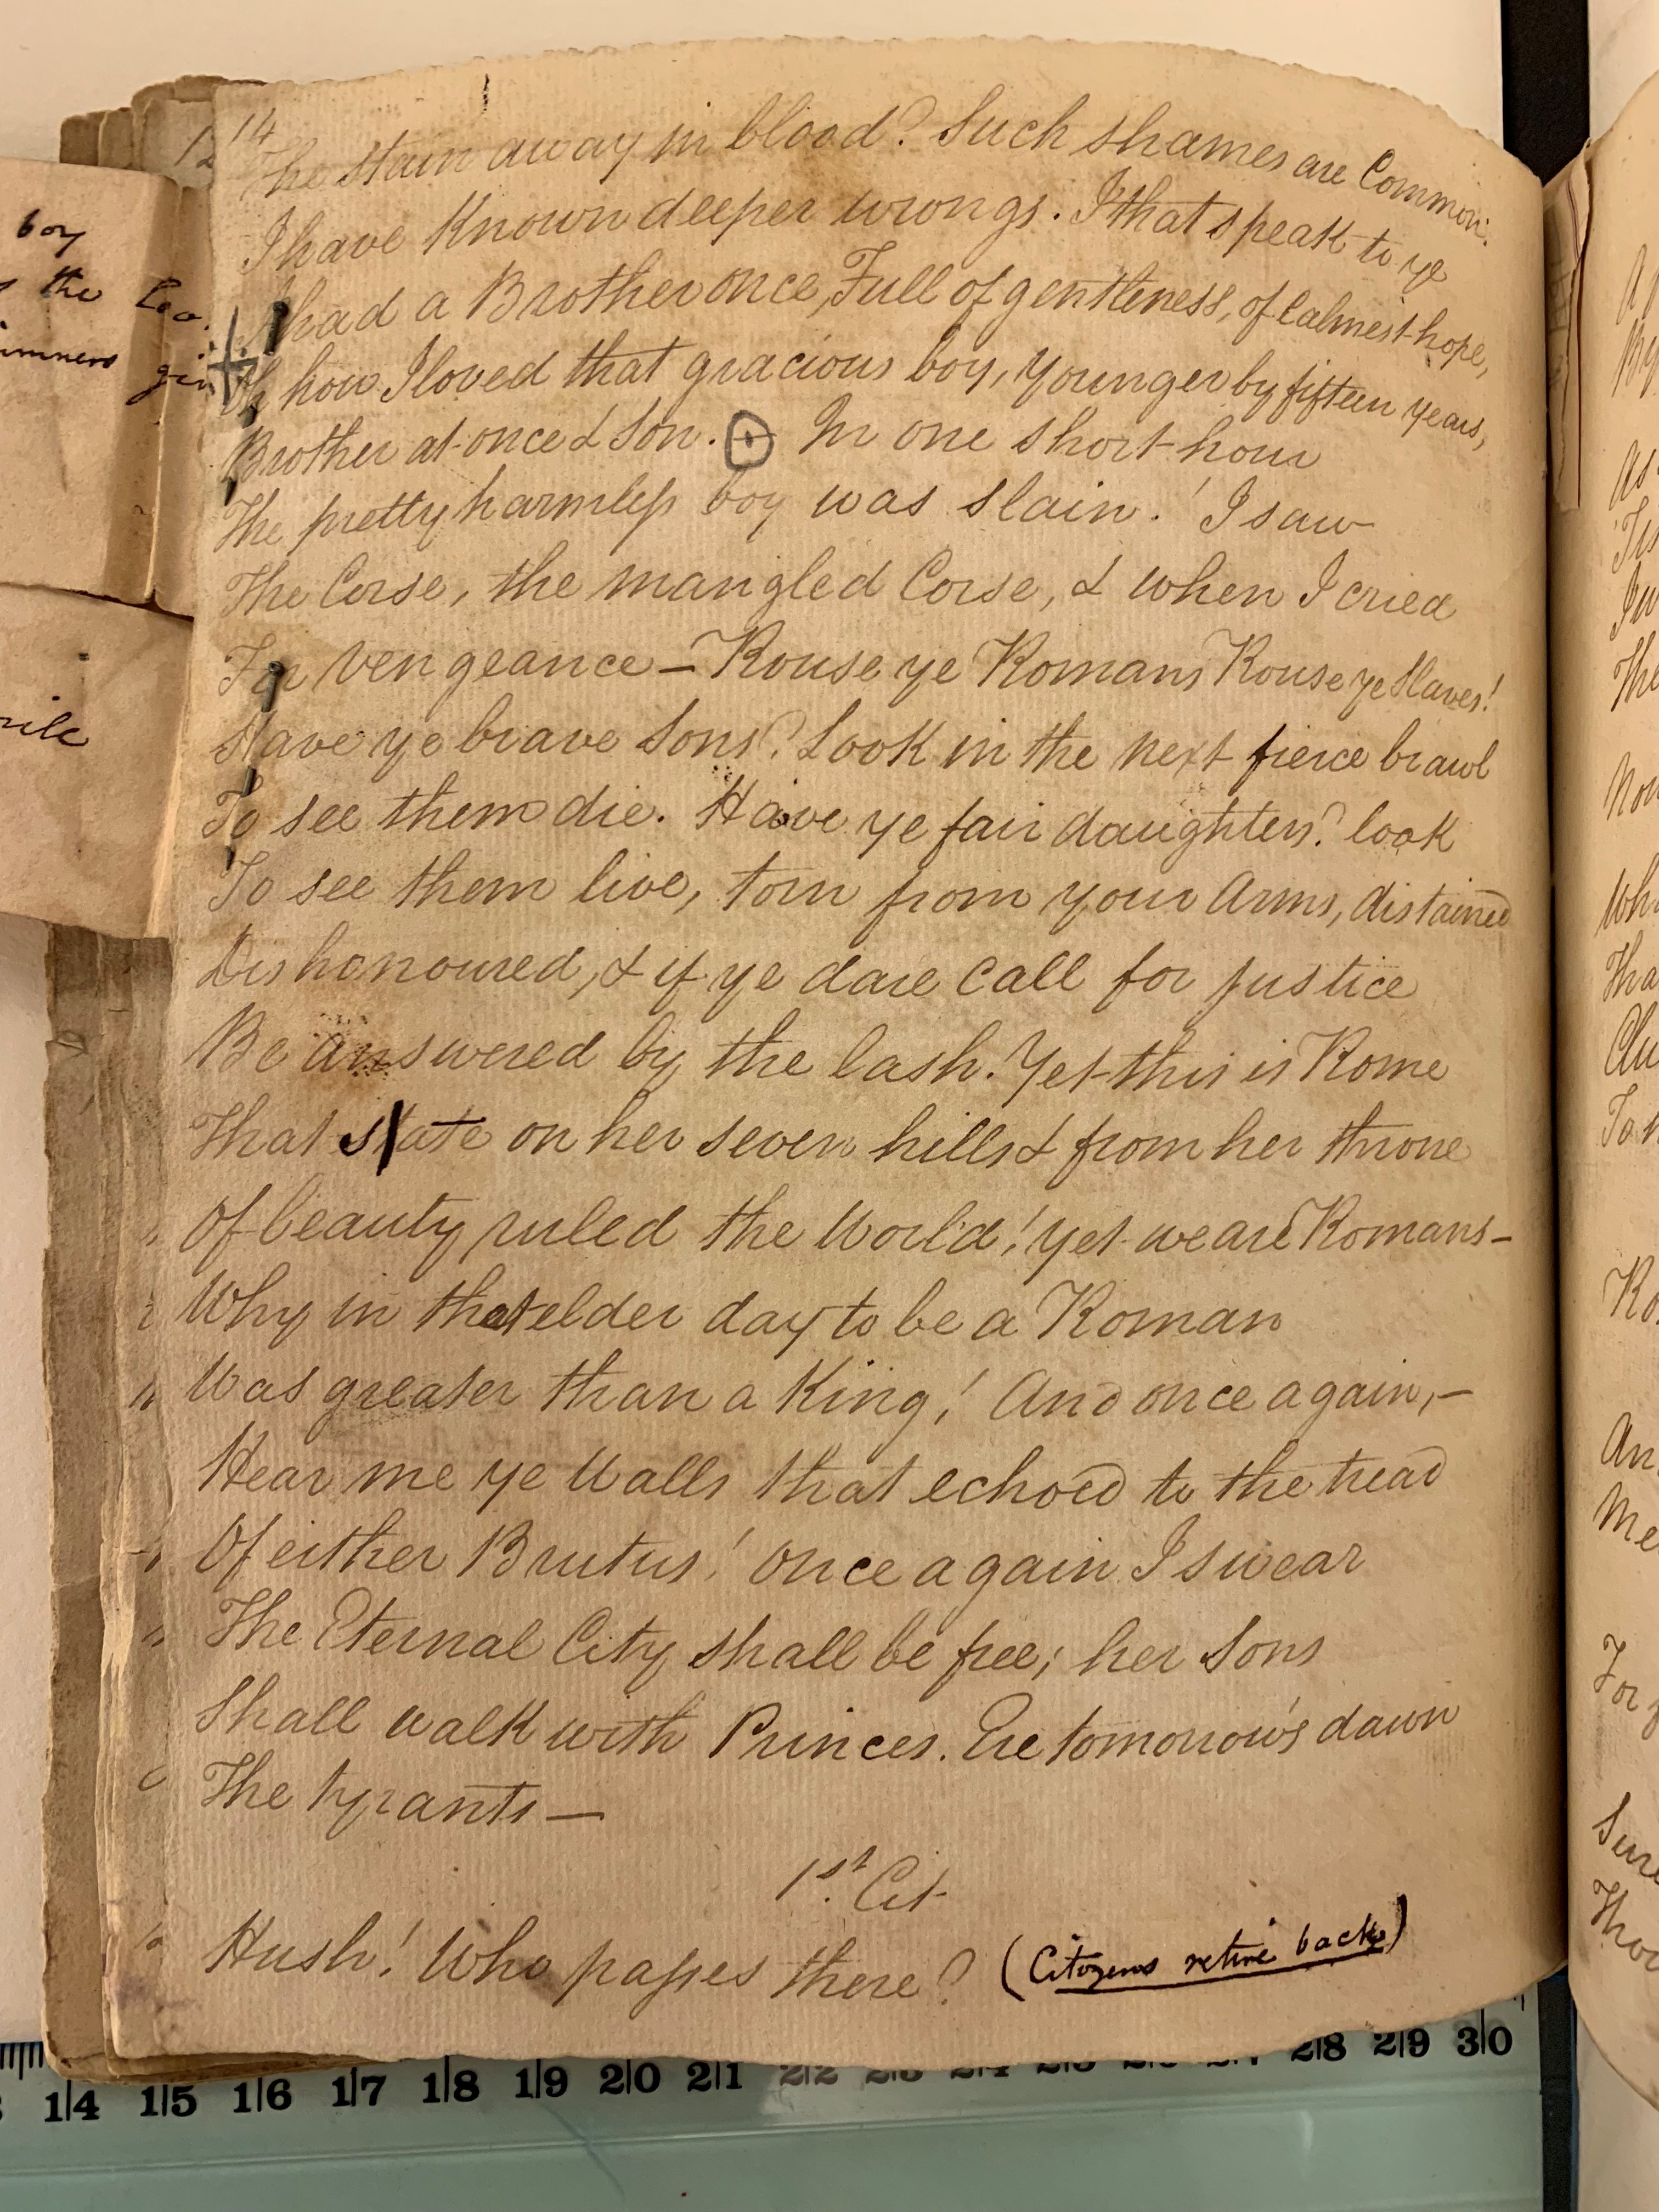 14
The stain away in blood? Such shames are Common.
I have Known deeper wrongs. I that speak to ye
I had a Brother once, Full of gentleness, of Calmest hope,
Oh how I loved that gracious boy, Younger by fifteen years,
Brother at once & Son. In one short hour
The pretty harmless boy was slain! I saw
The Corse, the mangled Corse, & when I cried
For vengeance – Rouse ye Romans Rouse ye Slaves!
Have ye brave Sons? Look in the next fierce brawl
To see them die. Have ye fair daughters? look
To see them live, torn from your Arms, distained
Dishonoured, & if ye dare Call for justice
Be answered by the lash. Yet this is Rome
That sate on her seven hills & from her throne
Of beauty ruled the World! yet we are Romans –
Why in that elder day to be a Roman
Was greater than a King! And once again, –
Hear me ye Walls that echoed to the tread
Of either Brutus! Once again I swear
The Eternal City shall be free; her Sons
Shall walk with Princes. Ere tomorrow's dawn
The tyrants —
1st. Cit
Hush! Who passes there? (Citizens retire back)
boy
the
14 15 16 17 18 19 20 21 22 28 29 30